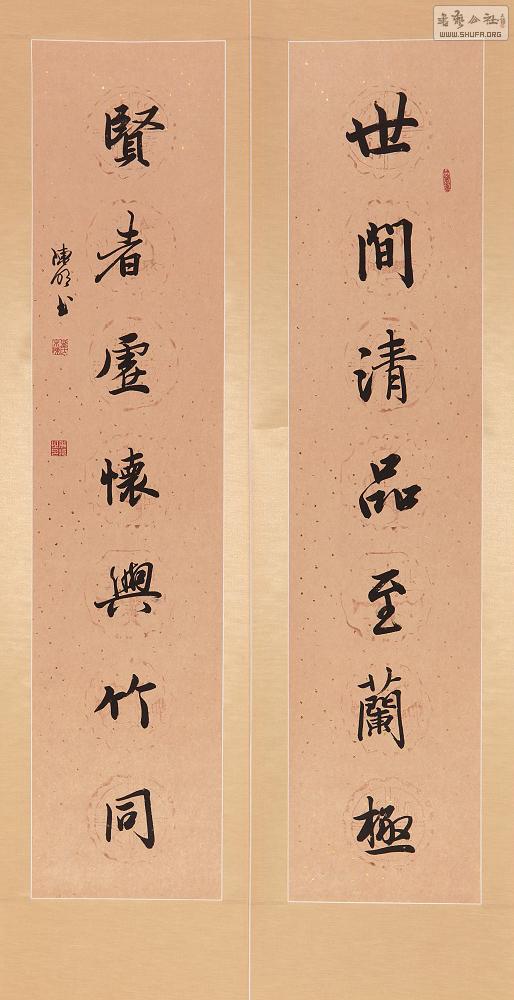 書藝公社
WWW.SHUFA.ORG
世間清品至蘭極
賢者虛懷與竹同